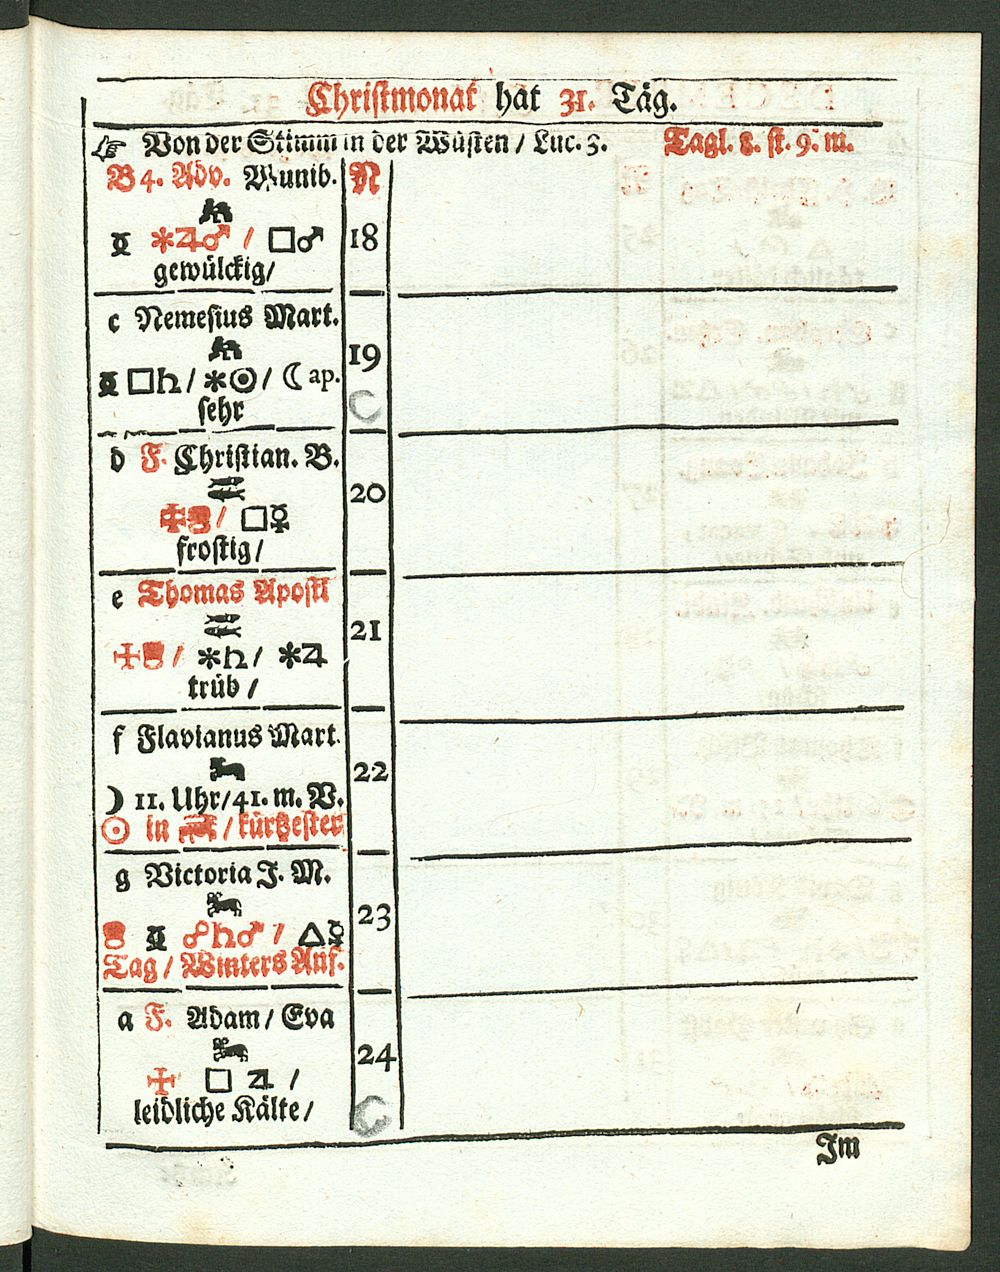 Christmonat hat 31. Täg.
☞ Von der Stimm in der Wüsten / Luc. 3. Tagl. 8. st. 9. m.
B 4. Adv. Wunib. N
⚹♃♂ / □♂ 18
gewülckig/
c Nemesius Mart.
19
□♄ / ⚹☉ / ☾ ap.
sehr
d F. Christian. B.
20
□☿
frostig /
e Thomas Apostl
21
⚹♄ / ⚹♃
trüb /
f Flavianus Mart.
22
☽ 11. Uhr / 41. m. V.
☉ in ♑ / kürtzester
g Victoria J. M.
23
☍♄♂ / △☿
Tag / Winters Anf.
a F. Adam / Eva
24
□ ♃ /
leidliche Kälte /
Im